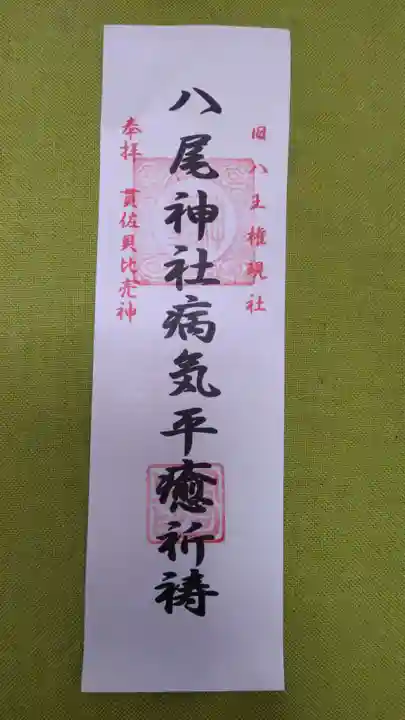 旧八王権現社
八尾神社病気平癒祈祷
奉拝 貫佐貝比売神